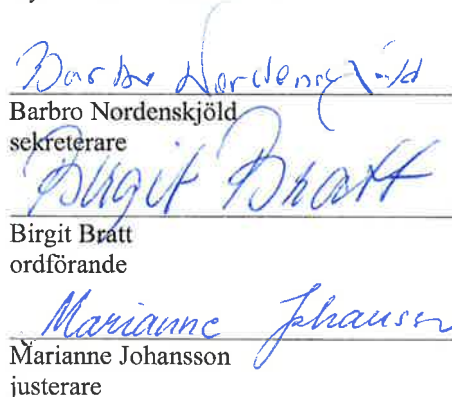 Barbro Nordenskjöld
Barbro Nordenskjöld
sekreterare
Birgit Bratt
Birgit Bratt
ordförande
Marianne Johansson
Marianne Johansson
justerare